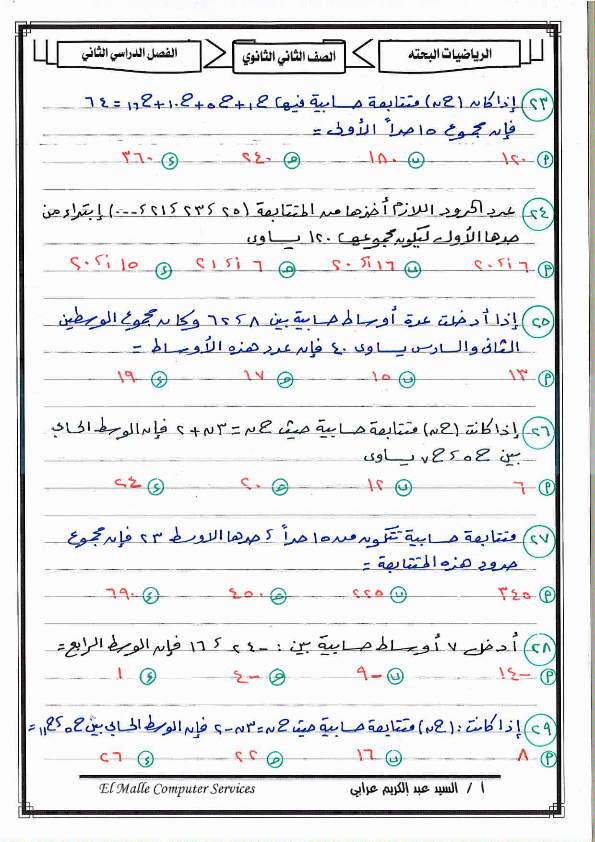 الرياضيات البحته
الصف الثاني الثانوي
الفصل الدراسي الثاني
٢٣ إذا كان (ح ن) متتابعة حسابية فيها ح١ + ح٥ + ح١٠ + ح١٦ = ٦٤
فإن مجموع ١٥ حداً الأولى =
أ ١٢٠ ب ١٨٠ ح ٢٤٠ ء ٣٦٠
٢٤ عدد الحدود اللازم أخذها من المتتابعة (٢٥ ، ٢٣ ، ٢١ ، ...) إبتداء من
حدها الأول ليكون مجموعها ١٢٠ يساوى
أ ٦ أ، ٢٠ ب ١٦ أ، ٢٠ ح ٦ أ، ٢١ ء ١٥ أ، ٢٠
٢٥ إذا أدخلت عدة أوساط حسابية بين ٨ ، ٦٢ وكان مجموع الوسطين
الثانى والسادس يساوى ٤٠ فإن عدد هذه الأوساط =
أ ١٣ ب ١٥ ح ١٧ ء ١٩
٢٦ إذا كانت (ح ن) متتابعة حسابية حيث ح ن = ٣ ن + ٢ فإن الوسط الحسابي
بين ح٥ ، ح٧ يساوى
أ ٦ ب ١٢ ح ٢٠ ء ٢٤
٢٧ متتابعة حسابية تتكون من ١٥ حداً ، حدها الاوسط ٢٣ فإن مجموع
حدود هذه المتتابعة =
أ ٣٤٥ ب ٢٢٥ ح ٤٥٠ ء ٦٩٠
٢٨ أدخل ٧ أوساط حسابية بين : -٢٤ ، ١٦ فإن الوسط الرابع =
أ -١٤ ب -٩ ح -٤ ء ١
٢٩ إذا كانت : (ح ن) متتابعة حسابية حيث ح ن = ٣ ن - ٢ فإن الوسط الحسابي بين ح٥ ، ح١١ =
أ ٨ ب ١٦ ح ٢٢ ء ٢٦
El Malle Computer Services
أ / السيد عبد الكريم عرابي